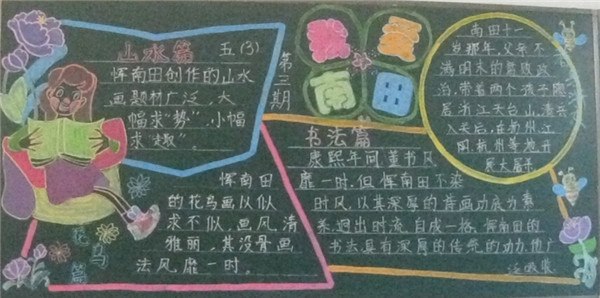 山水篇
五(3)
恽南田创作的山水
画题材广泛,大
幅求“势”,小幅
求“趣”。
第三期
南田
南田十一
岁那年,父亲不
满明末的
治,带着两个孩子隐
居浙江天台山,清兵
入关后,在浙江
书法篇
康熙年间董书风
靡一时,但恽南田不染
时风,以其深厚的书画功底为素
养,迥出时流,自成一格,恽南田的
书法具有深厚的传统的功力
恽南田
的花鸟画以似
求不似,画风清
雅丽,其没骨画
法风靡一时。
花鸟篇